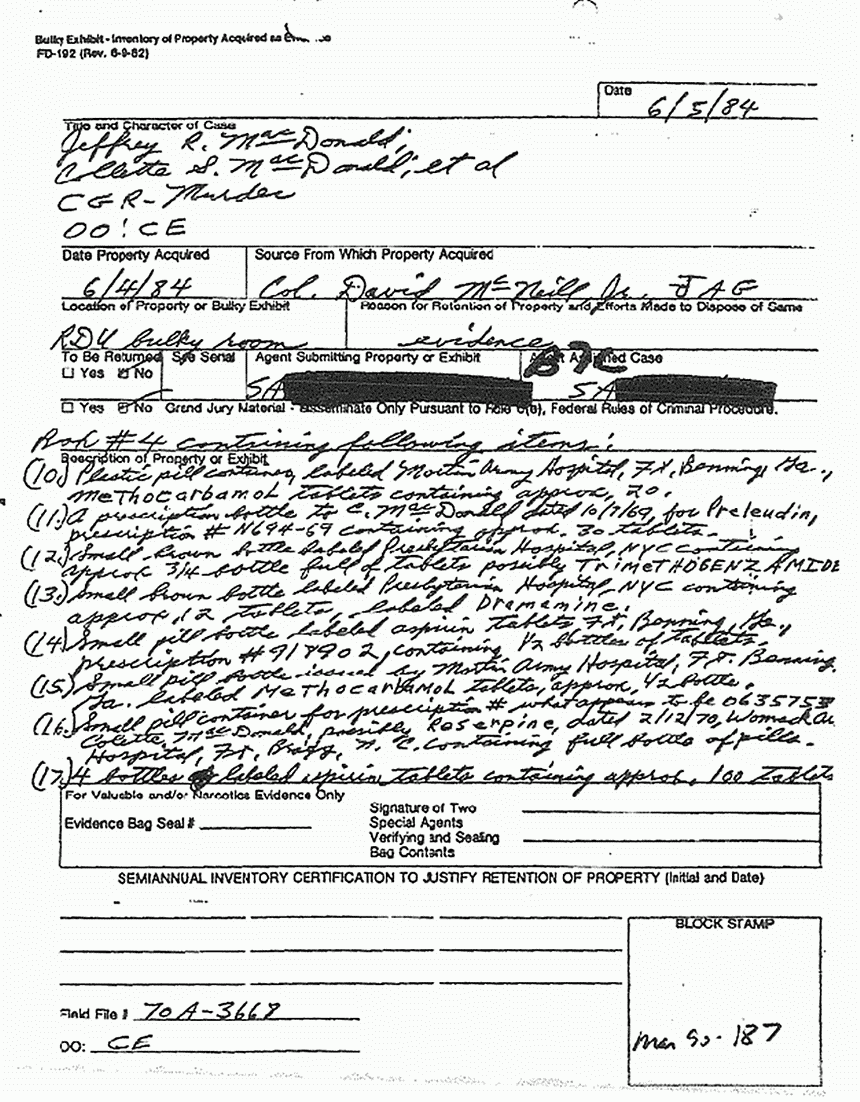 Bulky Exhibit - Inventory of Property Acquired as
FD-192 (Rev. 6-9-82)
Date
6/5/84
Title and Character of Case
Jeffrey R. MacDonald;
Collette S. MacDonald; et al
CGR - Murder
OO: CE
Date Property Acquired
Source From Which Property Acquired
6/4/84
Col. David McNeill Jr. JAG
Location of Property or Bulky Exhibit
Reason for Retention of Property and Efforts Made to Dispose of Same
RDU bulky room
evidence
To Be Returned
See Serial
Agent Submitting Property or Exhibit
Agent Assigned Case
B7C
Yes No
SA
SA
Yes No Grand Jury Material - Disseminate Only Pursuant to Rule 6(e), Federal Rules of Criminal Procedure.
Box #4 containing following items:
Description of Property or Exhibit
(10.) Plastic pill container, labeled Martin Army Hospital, Ft. Benning, Ga.,
Methocarbamol tablets containing approx. 20.
(11.) A prescription bottle to C. MacDonald dated 10/7/69, for Preludin,
prescription # N694-69 containing approx. 30 tablets.
(12.) Small brown bottle labeled Presbyterian Hospital, NYC containing
approx 3/4 bottle full of tablets possibly TRIMETHOGENZAMIDE
(13.) Small brown bottle labeled Presbyterian Hospital, NYC containing
approx. 12 tablets, labeled Dramamine.
(14.) Small pill bottle labeled aspirin tablets Ft. Benning, Ga.,
prescription # 917902, containing 1/2 bottles of tablets.
(15.) Small pill bottle issued by Martin Army Hospital, Ft. Benning,
Ga. labeled Methocarbamol tablets, approx. 1/2 bottle.
(16.) Small pill container for prescription # what appears to be 0635753
Colette MacDonald, possibly Reserpine, dated 2/12/70, Womack
Hospital, Ft. Bragg, N.C. containing full bottle of pills.
(17.) 4 bottles labeled aspirin tablets containing approx. 100 tablets
For Valuable and/or Narcotics Evidence Only
Evidence Bag Seal #
Signature of Two
Special Agents
Verifying and Sealing
Bag Contents
SEMIANNUAL INVENTORY CERTIFICATION TO JUSTIFY RETENTION OF PROPERTY (Initial and Date)
BLOCK STAMP
Field File # 70A-3668
OO: CE
187